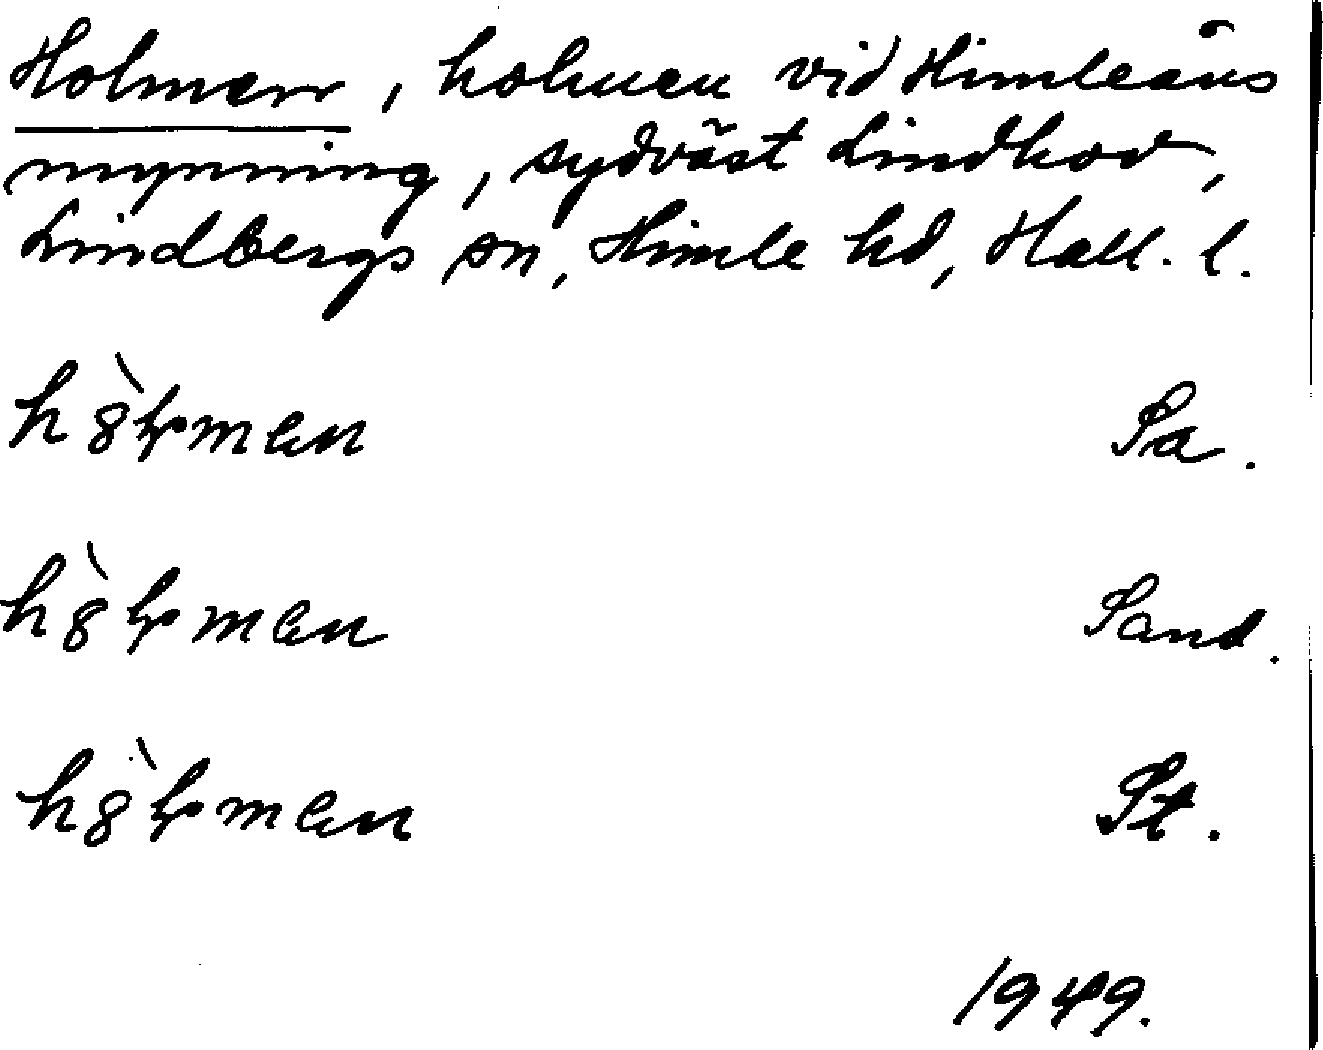 Holmen, holmen vid Himleåns
mynning, sydväst Lindhov,
Lindbergs sn, Himle hd, Hall. l.
Sa.
Sand.
St.
1949.